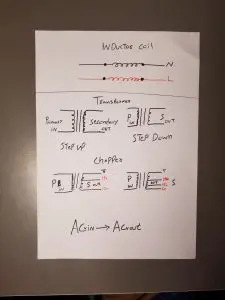 INDuctoR coil
N
L
TRansformer
PRimary IN secondary OUT
P IN S OUT
STEP UP
STEP DOWN
Chopper
P IN S OUT
P IN OUT S
ACin → ACout